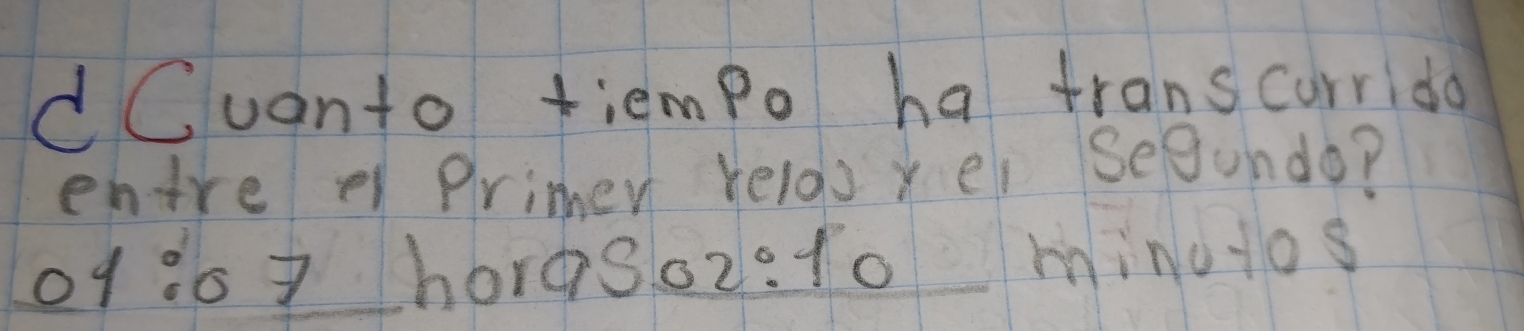 d Cuanto tiempo ha transcurrido
entre el Primer reloj y el Segundo?
01:07 horas 02:10 minutos